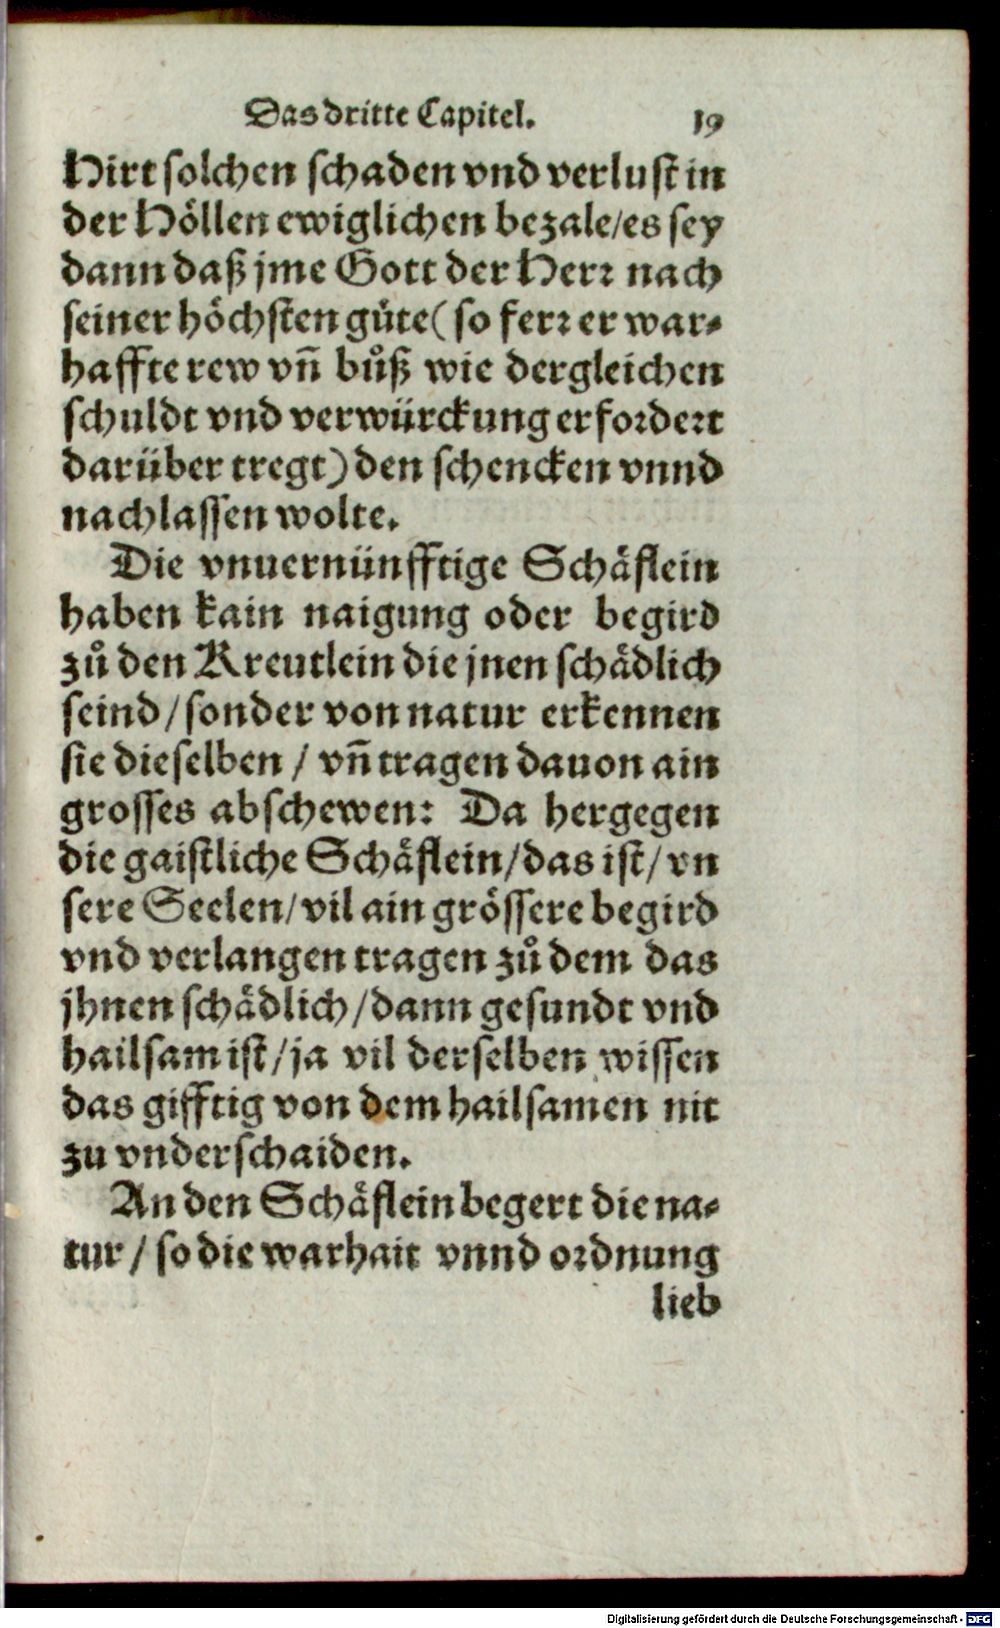 Das dritte Capitel. 19
Hirt solchen schaden vnd verlust in
der Höllen ewiglichen bezale/es sey
dann daß jme Gott der Herr nach
seiner höchsten güte (so ferr er war-
haffte rew vñ bůß wie dergleichen
schuldt vnd verwürckung erfordert
darüber tregt) den schencken vnnd
nachlassen wolte.
Die vnuernünfftige Schäflein
haben kain naigung oder begird
zů den Kreutlein die jnen schädlich
seind/sonder von natur erkennen
sie dieselben / vñ tragen dauon ain
grosses abschewen: Da hergegen
die gaistliche Schäflein/das ist/vn
sere Seelen/vil ain grössere begird
vnd verlangen tragen zů dem das
jhnen schädlich/dann gesundt vnd
hailsam ist/ja vil derselben wissen
das gifftig von dem hailsamen nit
zu vnderschaiden.
An den Schäflein begert die na-
tur / so die warhait vnnd ordnung
lieb
Digitalisierung gefördert durch die Deutsche Forschungsgemeinschaft - DFG